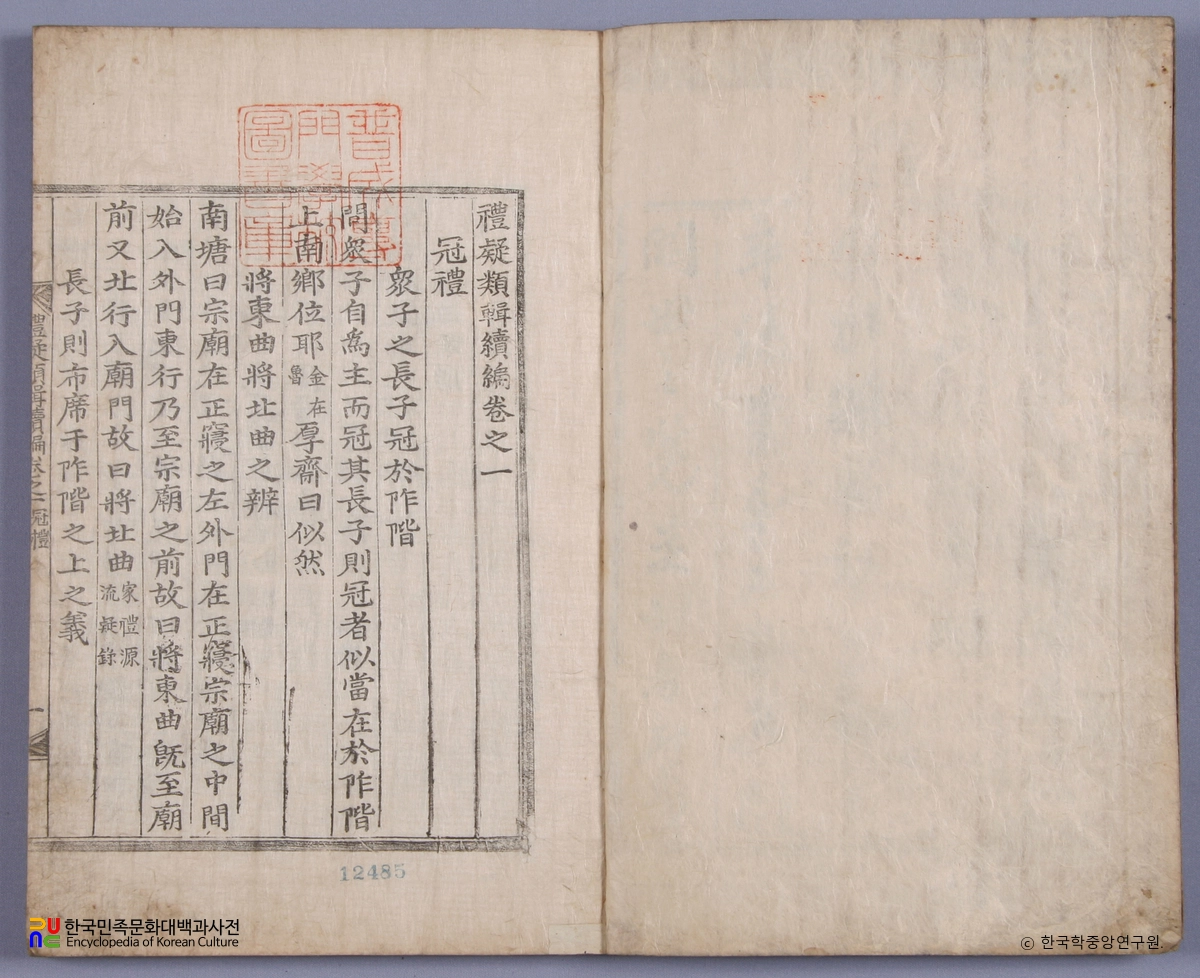 禮疑類輯續編卷之一
冠禮
衆子之長子冠於阼階
問衆子自爲主而冠其長子則冠者似當在於阼階
上南鄕位耶 金在魯 厚齋曰似然
將東曲將北曲之辨
南塘曰宗廟在正寢之左外門在正寢宗廟之中間
始入外門東行乃至宗廟之前故曰將東曲旣至廟
前又北行入廟門故曰將北曲 家禮源流疑錄
長子則布席于阼階之上之義
禮疑類輯續編卷之一 冠禮
一
普成專
門學校
圖書庫
12485
한국민족문화대백과사전
Encyclopedia of Korean Culture
ⓒ 한국학중앙연구원.